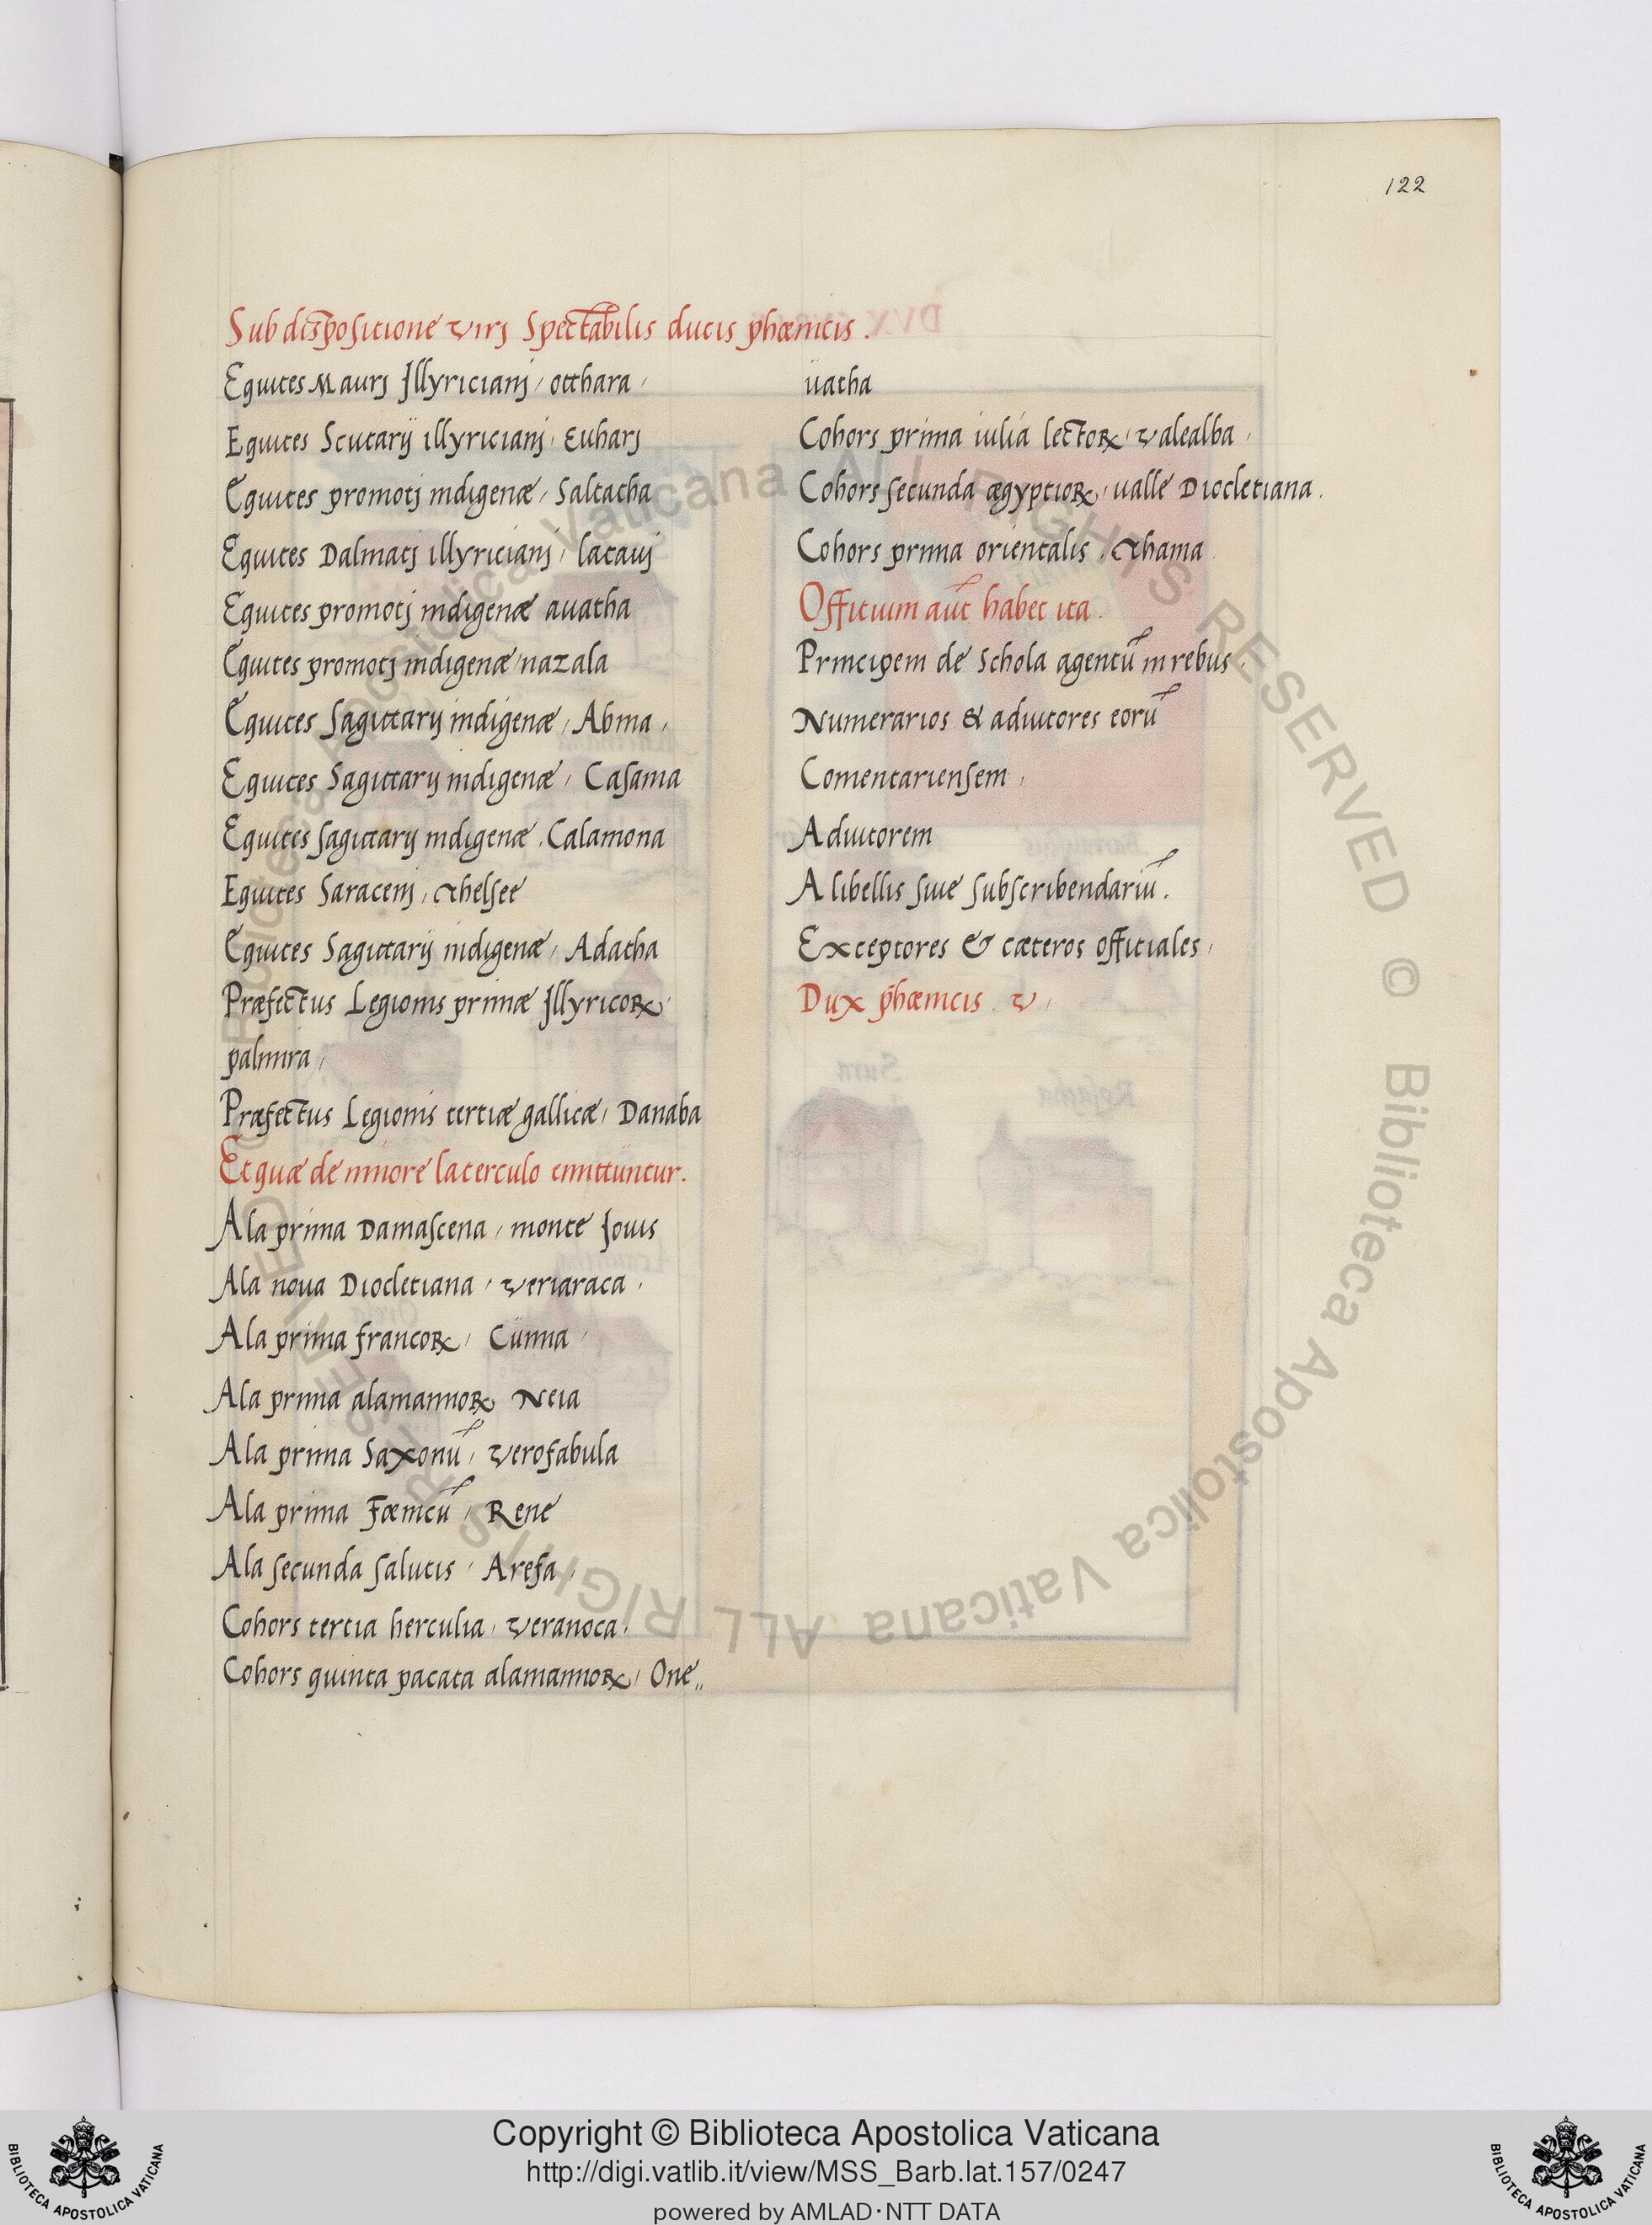 122
Sub dispositione virj Spectabilis ducis phœnicis .
Equites Maurj Jllyricianj, otthara,
Equites Scutarij illyricianj, Euharj
Equites promotj indigenæ, Saltatha
Equites Dalmatj illyricianj, lataui
Equites promotj indigenæ auatha
Equites promotj indigenæ, nazala
Equites Sagittarij indigenæ, Abina,
Equites Sagittarij indigenæ, Casama
Equites sagittarij indigenæ . Calamona
Equites Saracenj, thelsee
Equites Sagittarij indigenæ, Adatha
Præfectus Legionis primæ Jllyricoꝝ
palmira,
Præfectus Legionis tertiæ gallicæ, Danaba
Et quæ de minore laterculo emittuntur.
Ala prima Damascena, monte Jouis
Ala noua Diocletiana, veriaraca,
Ala prima francoꝝ, Cunna,
Ala prima alamannoꝝ Neia
Ala prima Saxonū, verofabula
Ala prima Fœnicū, Rene
Ala secunda salutis, Arefa,
Cohors tertia herculia, veranoca.
Cohors quinta pacata alamannoꝝ, One„
uatha
Cohors prima iulia lectoꝝ, valealba,
Cohors secunda ægyptioꝝ, ualle Diocletiana.
Cohors prima orientalis . thama.
Offitium aūt habet ita.
Principem de Schola agentū in rebus.
Numerarios & adiutores eorū
Comentariensem,
Adiutorem
A libellis siue subscribendariū.
Exceptores & cæteros offitiales,
Dux phœnicis . v,
Biblioteca Apostolica Vaticana ALL RIGHTS RESERVED © Biblioteca Apostolica Vaticana ALL RIGHTS RESERVED ©
Copyright © Biblioteca Apostolica Vaticana
http://digi.vatlib.it/view/MSS_Barb.lat.157/0247
powered by AMLAD·NTT DATA
BIBLIOTECA APOSTOLICA VATICANA
BIBLIOTECA APOSTOLICA VATICANA